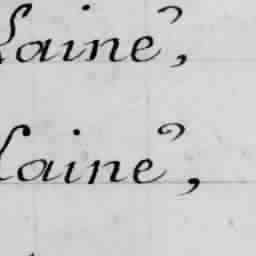 Laine,
laine,